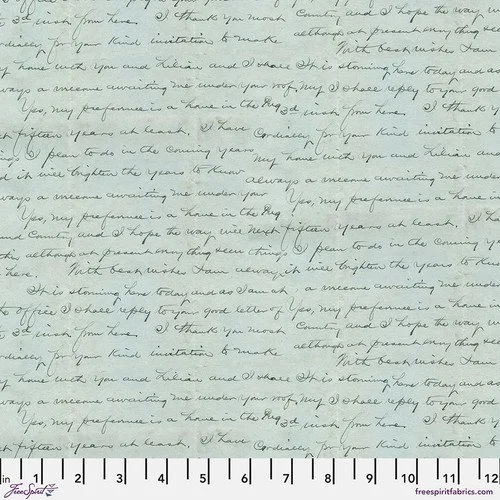 3rd inst from here. I thank you most County, and I hope the way will
Cordially, for your kind invitation to make although at present every thing seem
With best wishes I am
my home with you and Lilian and I shall It is storming here today and as
always a welcome awaiting me under your roof, my I shall reply to your good
Yes, my preference is a home in the 3rd inst from here. I thank y
fifteen years at least. I have Cordially, for your kind invitation to
things I plan to do in the coming years my home with you and Lilian and
it will brighten the years to know always a welcome awaiting me under
always a welcome awaiting me under your Yes, my preference is a home
Yes, my preference is a home in the next fifteen years at least. I
and County, and I hope the way will things I plan to do in the coming y
although at present every thing seem it will brighten the years to know
here. With best wishes I am always a welcome awaiting me under your
It is storming here today and as I am at Yes, my preference is a home in
office I shall reply to your good letter of County, and I hope the way w
3rd inst from here. I thank you most although at present every thing seem
Cordially, for your kind invitation to make With best wishes I am
my home with you and Lilian and I shall It is storming here today and as
always a welcome awaiting me under your roof, my I shall reply to your good
Yes, my preference is a home in the 3rd inst from here. I thank y
fifteen years at least. I have Cordially, for your kind invitation to
in 1 2 3 4 5 6 7 8 9 10 11 12
FreeSpirit
freespiritfabrics.com